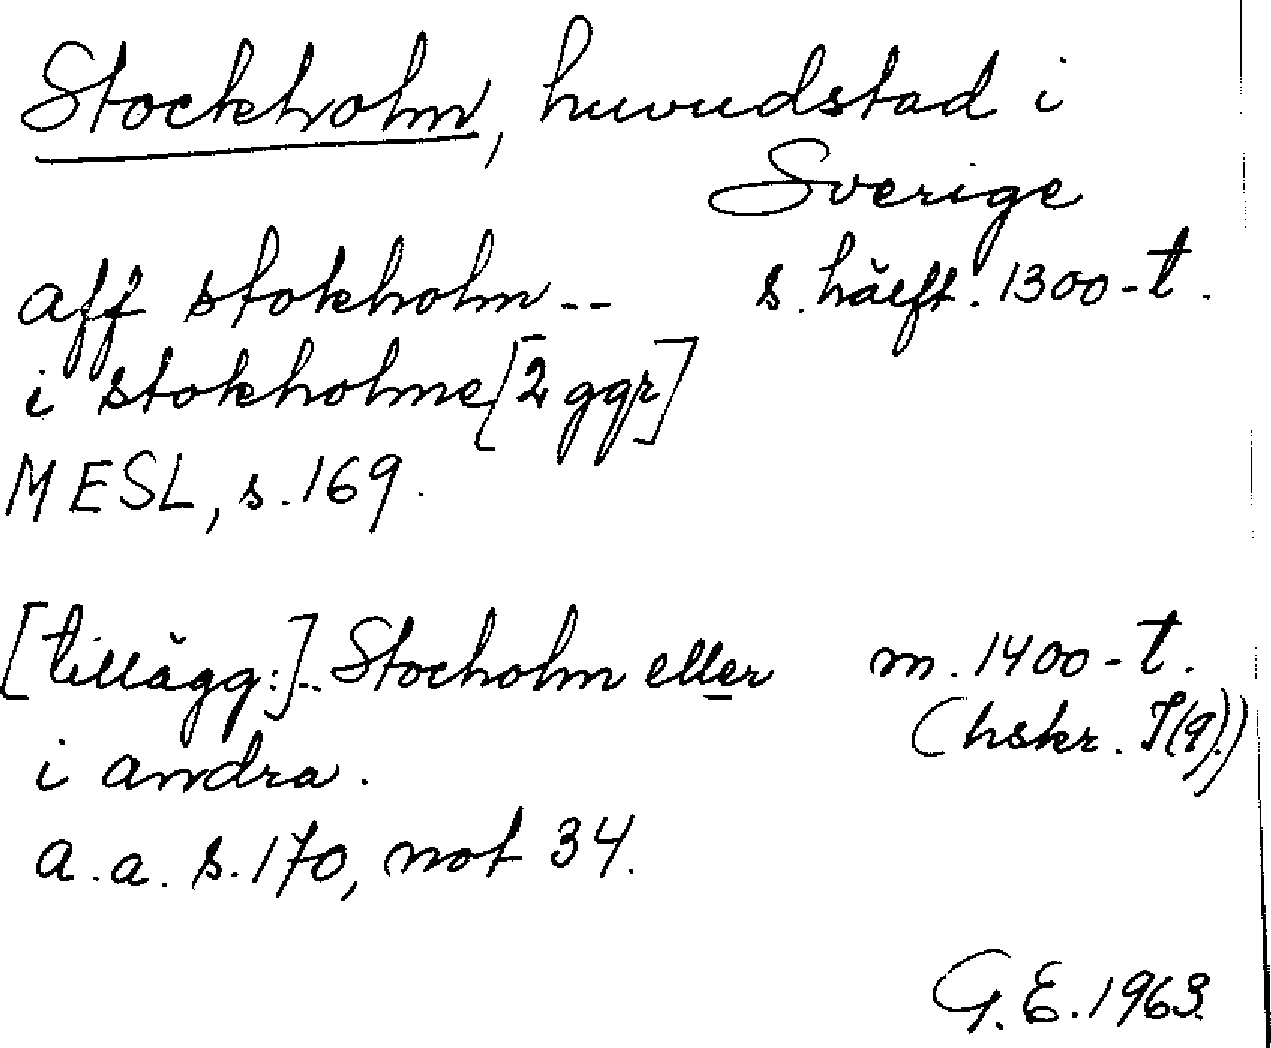 Stockholm, huvudstad i
Sverige
aff stokholm -- s. hälft. 1300-t.
i stokholme [2 ggr]
MESL, s. 169.
[tillägg:] -- Stocholm eller m. 1400-t.
i andra. (hskr. I(9))
a. a. s. 170, not 34.
G. E. 1963.